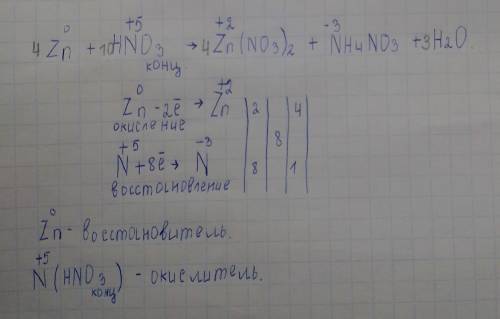 0 +5 +2 -3
4Zn + 10HNO3 → 4Zn(NO3)2 + NH4NO3 + 3H2O.
конц
0 +2
Zn - 2ē → Zn | 2 | | 4 |
окисление
8
+5 -3
N + 8ē → N | 8 | | 1 |
восстановление
0
Zn - восстановитель.
+5
N (HNO3 конц) - окислитель.